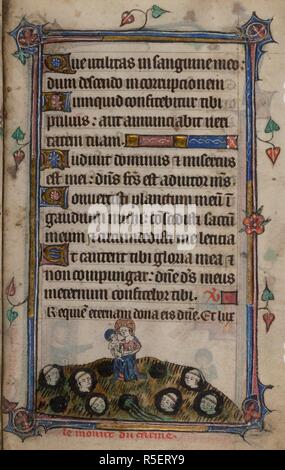 Que utilitas in sanguine meo:
dum descendo in corrupcionem
Nunquid confitebitur tibi
puluis: aut annunciabit veri
tatem tuam.
Audiuit dominus et misertus
est mei: dns fcs est adiutor ms
Conuertisti planctum meum i
gaudium michi:
meum et circumdedisti me leticia
Ut cantent tibi gloria mea et
non compungar: dne ds meus
ineternum confitebor tibi.
Requiem eternam dona eis dne. Et lux